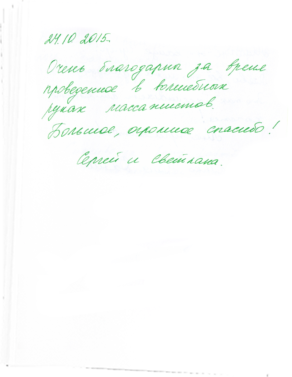 24.10 2015.
Очень благодарны за время
проведенное в волшебных
руках массажистов.
Большое, огромное спасибо!
Сергей и Светлана.